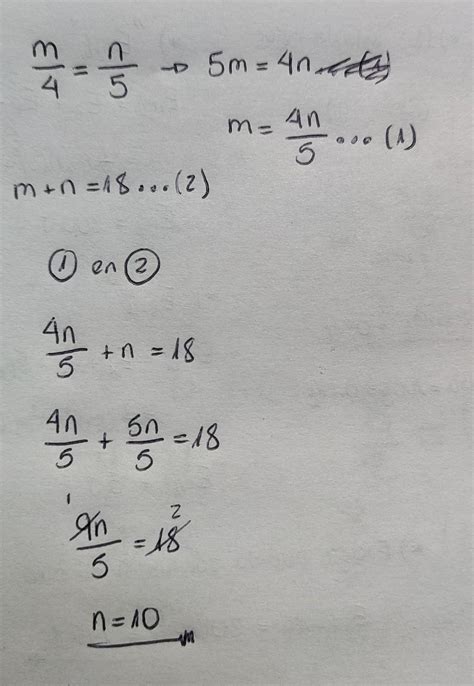 m/4 = n/5 → 5m = 4n
m = 4n/5 ... (1)
m + n = 18 ... (2)
① en ②
4n/5 + n = 18
4n/5 + 5n/5 = 18
1 2
9n/5 = 18
n = 10